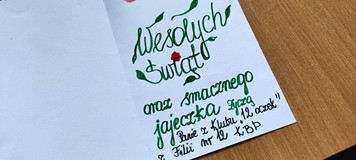 Wesołych
Świąt
oraz smacznego
jajeczka życzą
Panie z Klubu „12 oczek"
z Filii nr 12 ŁBP